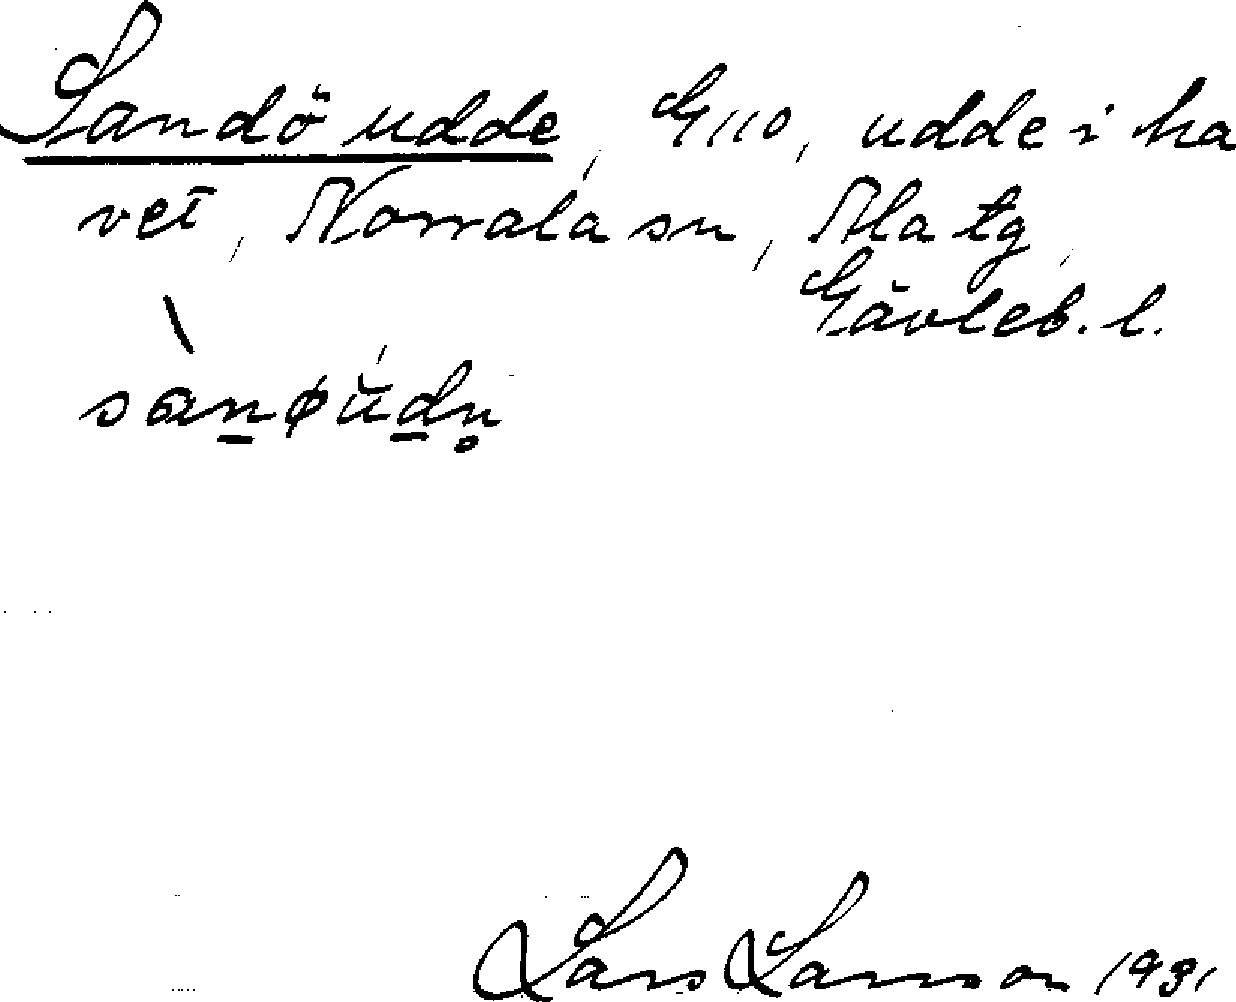 Sandö udde, G110, udde i ha
vet, Norrala sn, Ala tg,
Gävleb. l.
Lars Larsson 1931